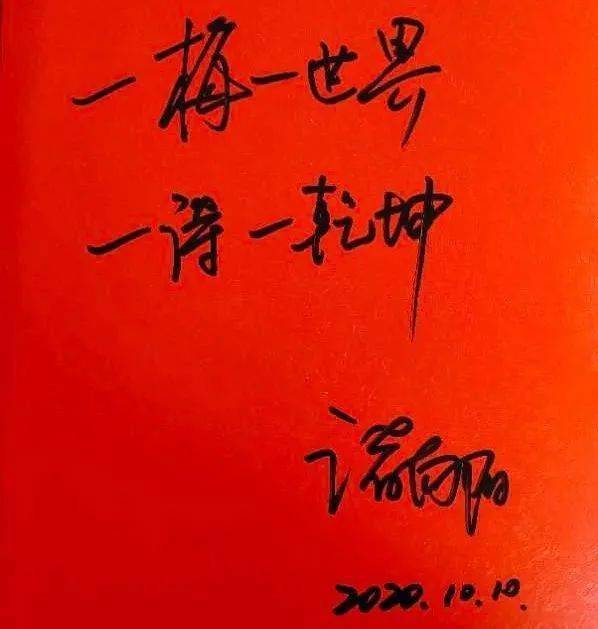 一梅一世界
一诗一乾坤
诸向阳
2020.10.10.